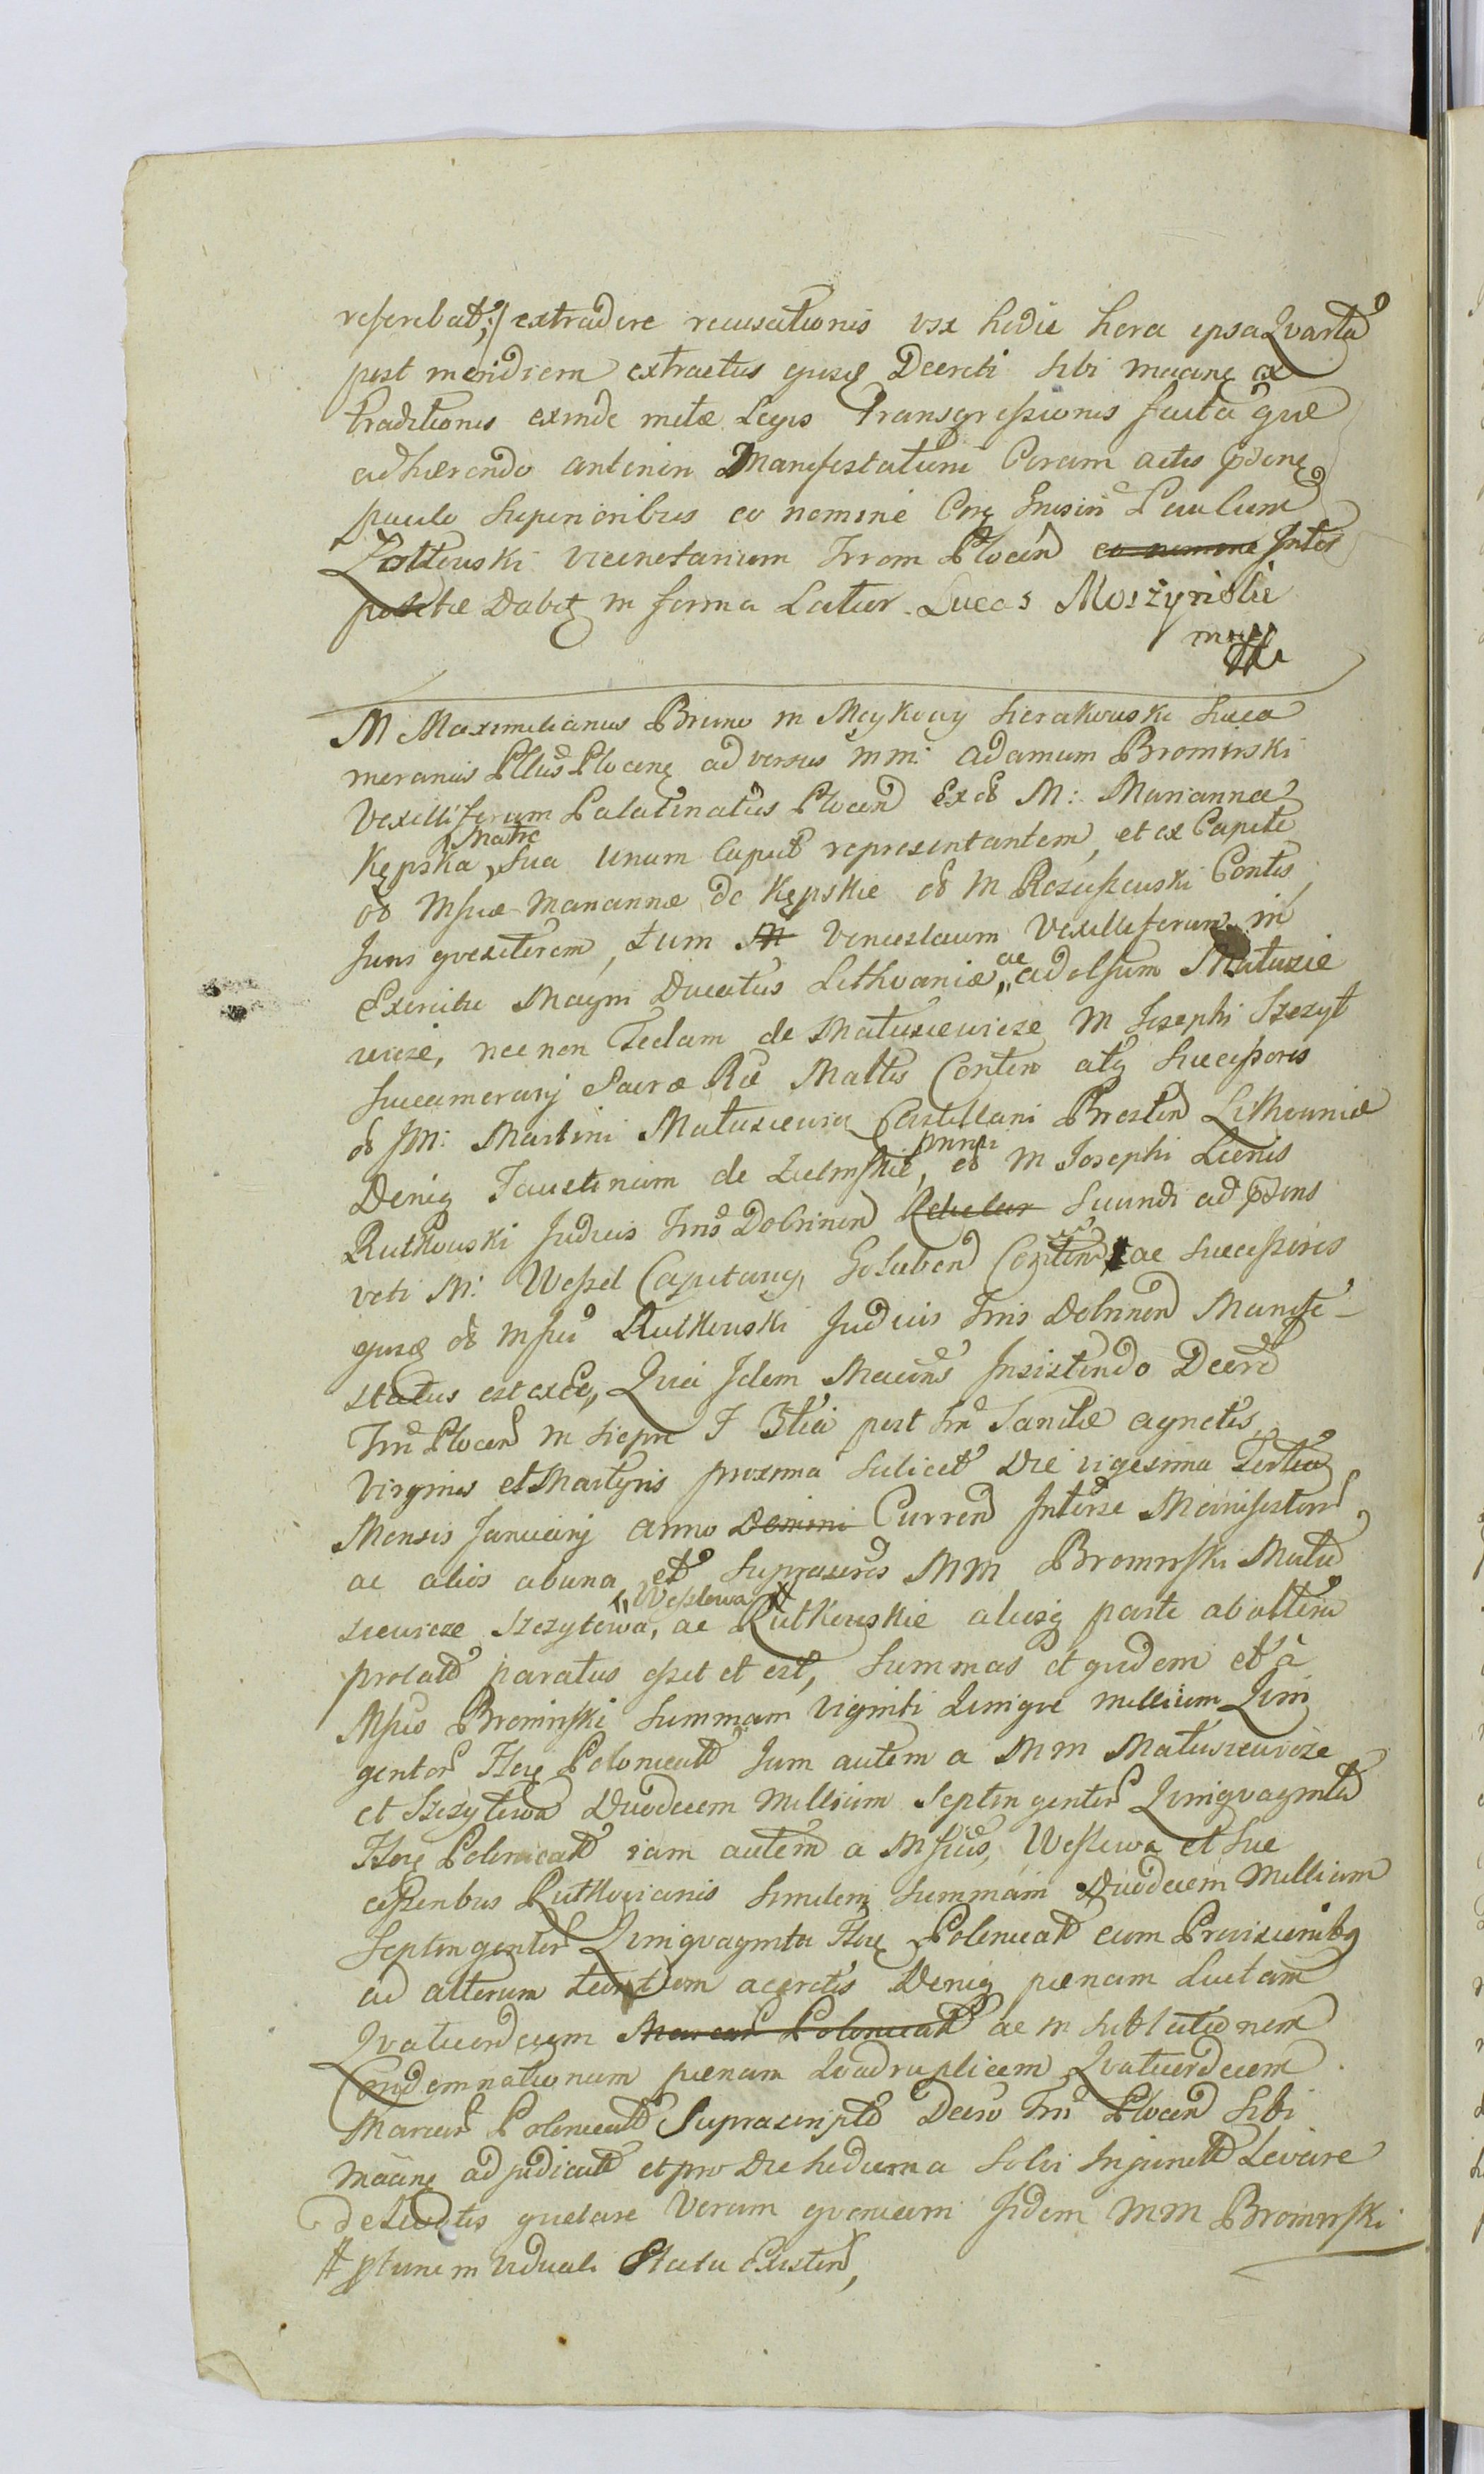 referebat;/ extradere recusationis usq hodie hora ipsa Qvarta
post meridiem extractus ejusq Decreti sibi Maãnę ex
traditionis exinde metæ Legis Transgressionis facta quæ
adhærendo anterióri Manifestationi Coram actis pd̃enę
paulo superioribus eo nomine
Zołtowski vicenotarium Trrem Plocen̄ eo nomine Inter
positæ Dabitq in forma Latior. Lucas Moszyński
mpp
M Maximilianus Bruno in Sierakowski Succa
merarius Pltus Plocenę adversus MM: Adamum Brominski
Vexilliferum Palatinatus Plocen̄ Ex ol M: Marianna
Kępska, Matre Sua Unum Caput representantem, et ex Capite
ol Mpcæ Mariannæ de Kępskie ol M Roscissewski Contis,
Juris qvesitorem, tum M Venceslaum Vexilliferum in
Exercitu Magni Ducatus Lithvaniæ, ac adolfum Matusie
wicze, nec non Teclam de Matusiewicze M Josephi Szczyt
Succamerarij Sacræ Ræ Mattis Contem atq Successores
ol JM: Martini Matusiewicz Castellani Bresten Lithvaniæ
Deniq Faustinam de Zielinskie, primi ol M Josephi Licnis
Rutkowski Judicis Trris Dobrinen̄ secundi ad p̄dens
voti M: Wessel Capitanei Golubens Contem ac Successores
ejusq ol Mpci Rutkowski Judicis Trris Dobrinen̄ Manife-
status est exeo, Quia Idem Maãns Insistendo Decro
Trri Plocen̄ in Sierpc F 3tia post Fm Sanctæ Agnetis
Virginis et Martyris proxima scilicet Die vigesima Tertia
Mensis Januarij anno Domini Curren̄ Inter se Manifestan̄,
ac alios ab una et suprascros MM Brominski Matu
siewicze Szczytowa, Wesslowa ac Rutkowskie aliasq parte ab altera
prolato paratus esset et est, Summas et qvidem et à
Mpco Brominski Summam Viginti Quinqve millium Quin
gentor Flor Polonicalł Jam autem a MM Matusiewicze
et Szczytowa Duodecem Millium Septingentor Qvinqvaginta
Flor Polonicalł iam autem a Mpcis, Wesslowa et Suc
cessoribus Rutkovianis Similem Summam Duodecem Millium
Septingentor Qvinqvaginta Flor Polonicalł cum Provisionibq
ad alterum tantum acerctis Deniq pœnam Luctam
Qvatuordecem Marcar Polonicalł ac in sublationem
Condemnationum pœnam Qvadruplicem Qvatuordecem
Marcar Polonicalł Suprascripto Decro Trri Plocen̄ sibi
Maãnę adjudicatt et pro Die hodierna Solvi Injunctt Levare
de Levatis qvietare Verum qvoniam Iidem MM Brominski
# ptunc in viduali Statu Existen̄,